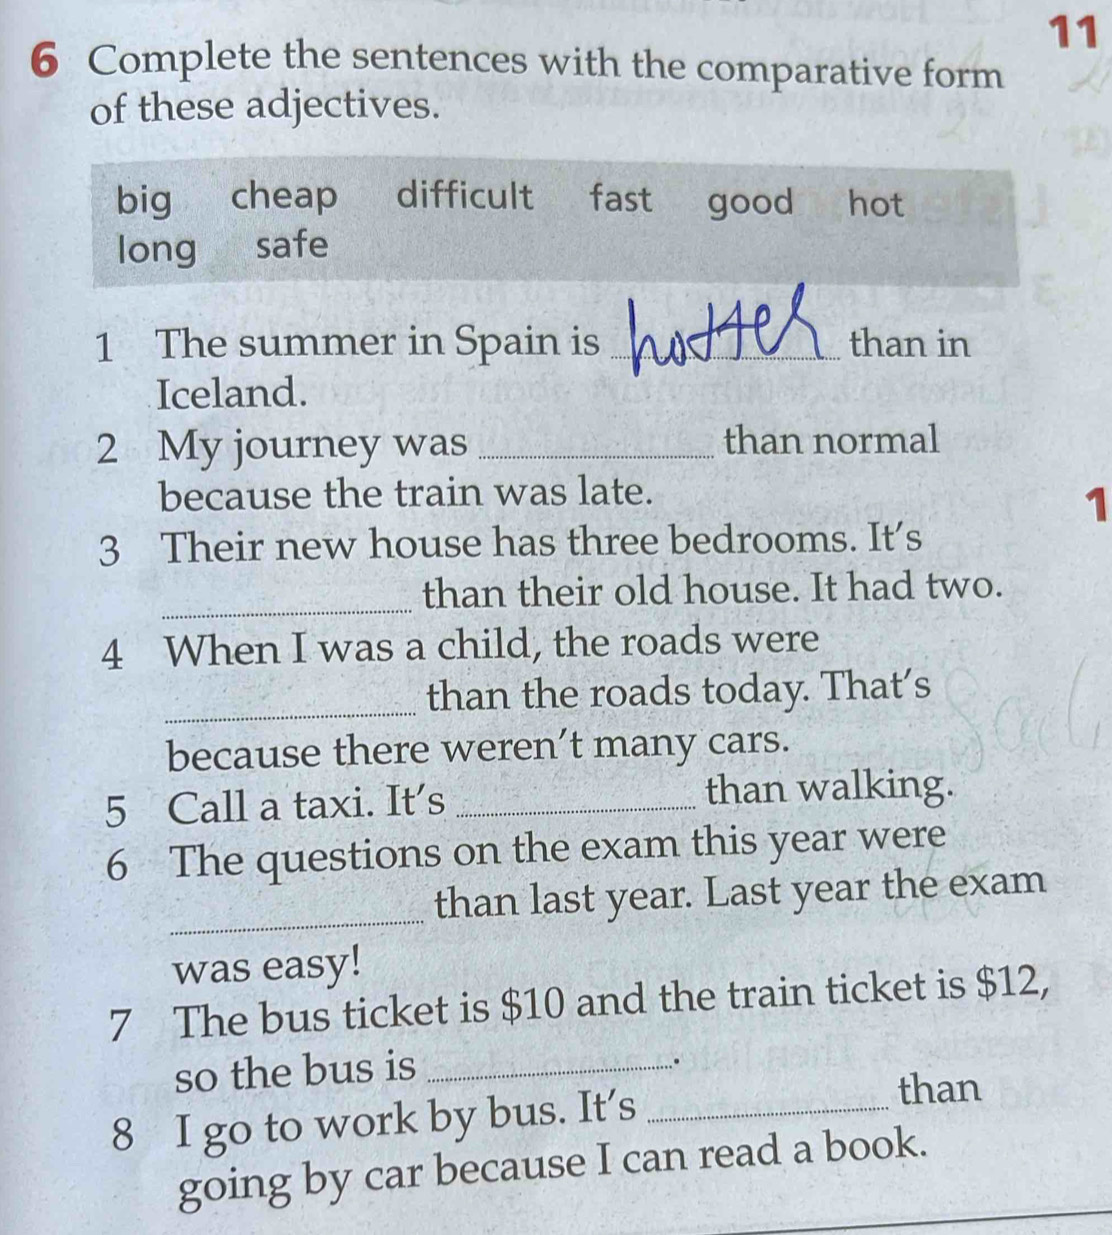 11
6 Complete the sentences with the comparative form
of these adjectives.
big cheap difficult fast good hot
long safe
1 The summer in Spain is hotter than in
Iceland.
2 My journey was ____ than normal
because the train was late.
1
3 Their new house has three bedrooms. It's
____ than their old house. It had two.
4 When I was a child, the roads were
____ than the roads today. That's
because there weren't many cars.
5 Call a taxi. It's ____ than walking.
6 The questions on the exam this year were
____ than last year. Last year the exam
was easy!
7 The bus ticket is $10 and the train ticket is $12,
so the bus is ____.
8 I go to work by bus. It's ____ than
going by car because I can read a book.